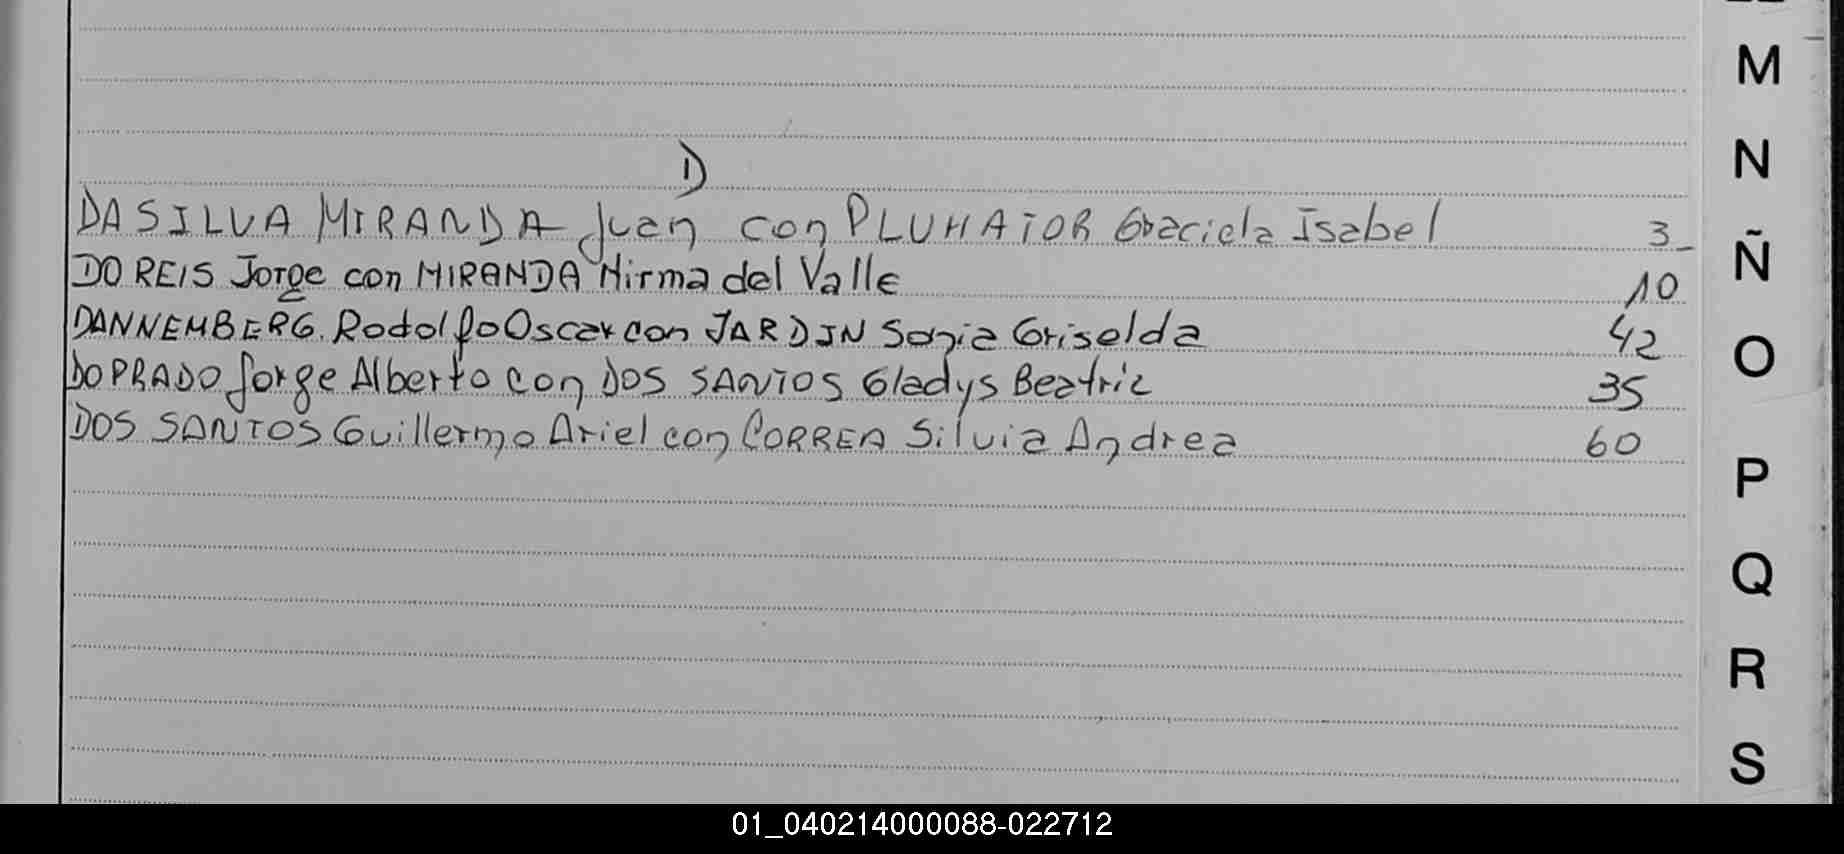 D
DA SILVA MIRANDA Juan con PLUHATOR Graciela Isabel 3
DO REIS Jorge con MIRANDA Nirma del Valle 10
DANNEMBERG Rodolfo Oscar con JARDIN Sonia Griselda 42
DO PRADO Jorge Alberto con DOS SANTOS Gladys Beatriz 35
DOS SANTOS Guillermo Ariel con CORREA Silvia Andrea 60
M
N
Ñ
O
P
Q
R
S
01_040214000088-022712